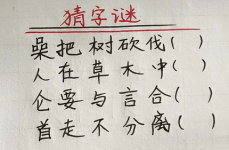 猜字谜
噪把树砍伐( )
人在草木中( )
仑要与言合( )
首走不分离( )